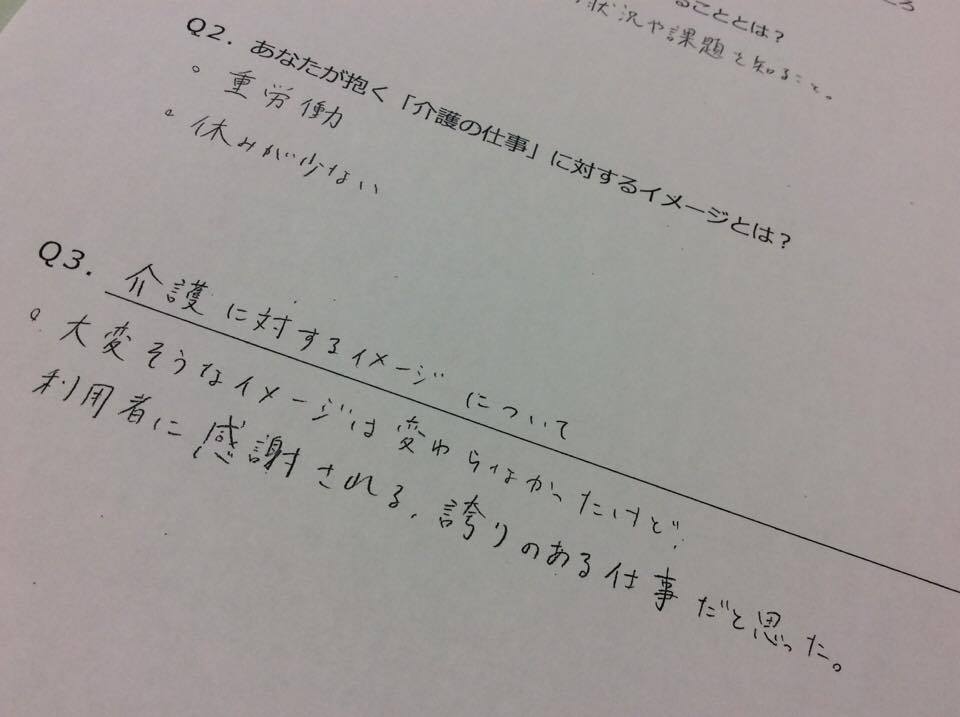 ることとは？
状況や課題を知ること。
Q2．あなたが抱く「介護の仕事」に対するイメージとは？
。重労働
。休みが少ない
Q3．介護に対するイメージについて
。大変そうなイメージは変わらなかったけど、
利用者に感謝される、誇りのある仕事だと思った。